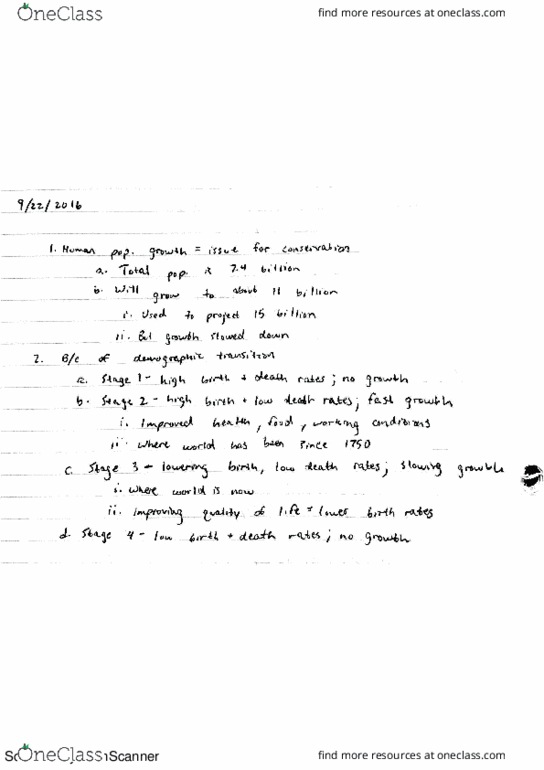 OneClass
find more resources at oneclass.com
9/22/2016
1. Human pop. growth = issue for conservation
a. Total pop is 7.4 billion
b. Will grow to about 11 billion
i. Used to project 15 billion
ii. But growth slowed down
2. B/c of demographic transition
a. Stage 1 - high birth + death rates; no growth
b. Stage 2 - high birth + low death rates; fast growth
i. Improved health, food, working conditions
ii. Where world has been since 1750
c. Stage 3 - lowering birth, low death rates; slowing growth
i. Where world is now
ii. Improving quality of life = lower birth rates
d. Stage 4 - low birth + death rates; no growth
OneClass
Scanner
find more resources at oneclass.com